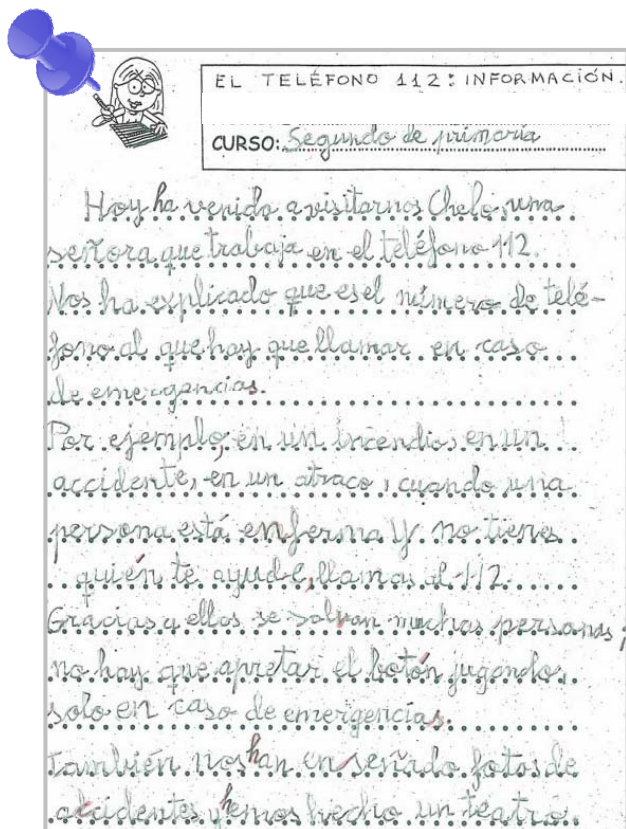 EL TELÉFONO 112: INFORMACIÓN.
CURSO: Segundo de primaria
Hoy ha venido a visitarnos Chelo, una
señora que trabaja en el teléfono 112.
Nos ha explicado que es el número de telé-
fono al que hay que llamar en caso
de emergencias.
Por ejemplo, en un incendio, en un
accidente, en un atraco, cuando una
persona está enferma y no tiene
quién te ayude, llamas al 112.
Gracias a ellos se salvan muchas personas;
no hay que apretar el botón jugando,
solo en caso de emergencias.
También nos han enseñado fotos de
accidentes y hemos hecho un teatro.